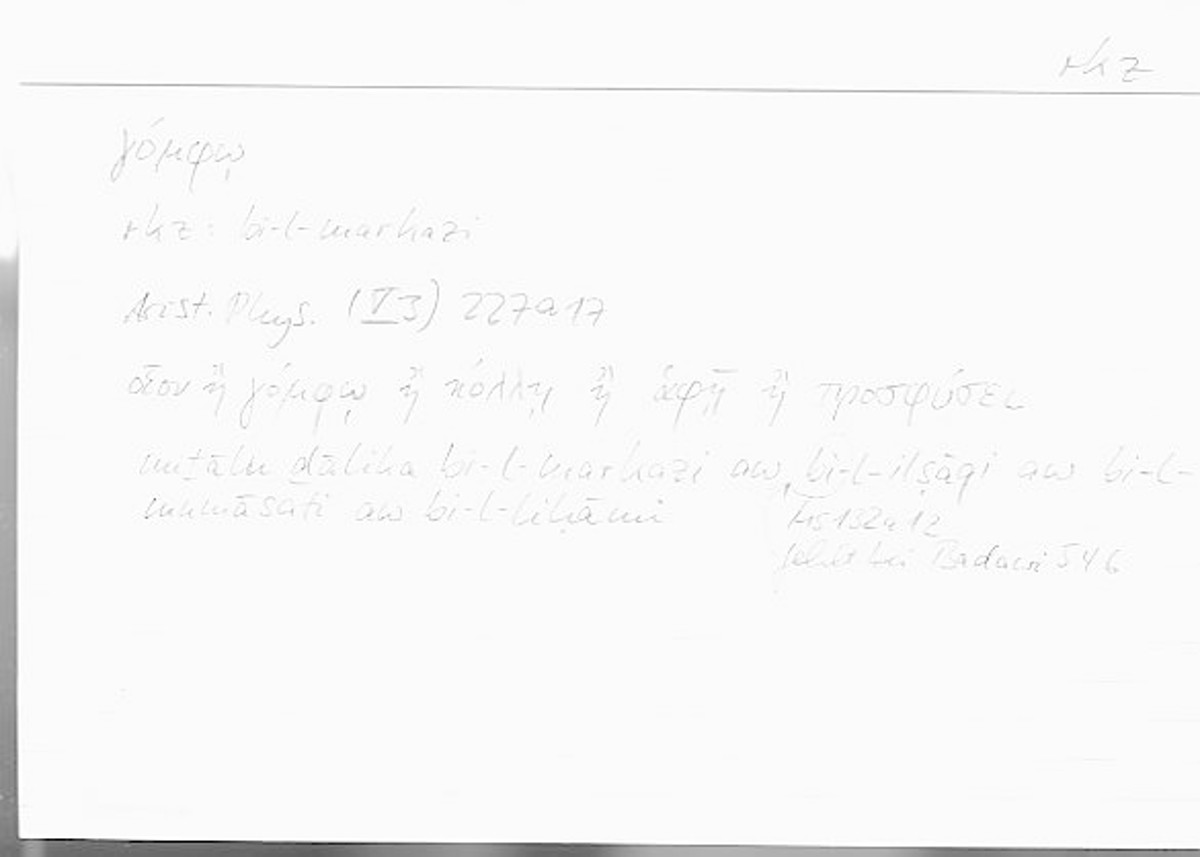 rkz
γόμφῳ
rkz: bi-l-markazi
Arist. Phys. (V 3) 227a17
οἷον ἢ γόμφῳ ἢ κόλλῃ ἢ ἁφῇ ἢ προσφύσει
miṯālu ḏālika bi-l-markazi aw bi-l-ilṣāqi aw bi-l-
mumāsati aw bi-l-liḥāmi
Hs 132a12
fehlt bei Badawi 546